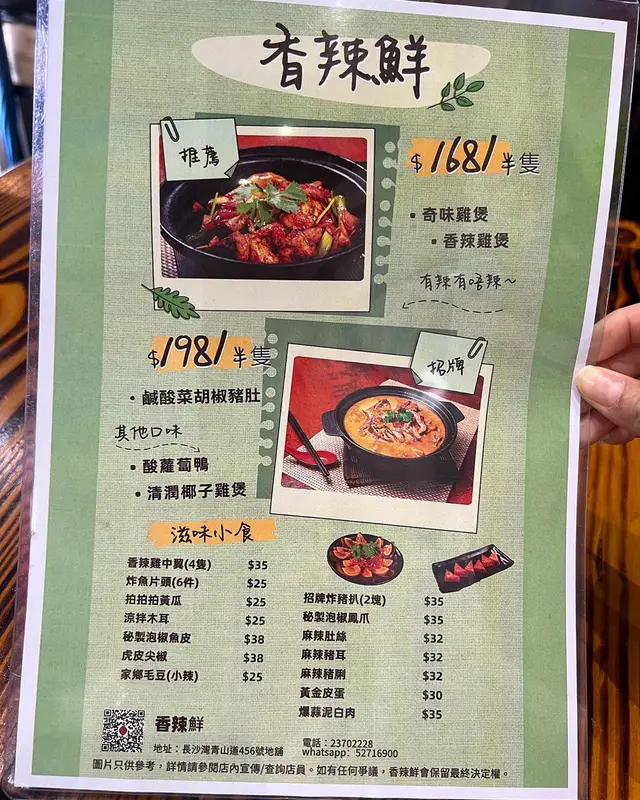 香辣鮮
推薦
$168/半隻
• 奇味雞煲
• 香辣雞煲
有辣有唔辣~
$198/半隻
招牌
• 鹹酸菜胡椒豬肚
其他口味
• 酸蘿蔔鴨
• 清潤椰子雞煲
滋味小食
香辣雞中翼(4隻) $35
炸魚片頭(6件) $25
拍拍拍黃瓜 $25
涼拌木耳 $25
秘製泡椒魚皮 $38
虎皮尖椒 $38
家鄉毛豆(小辣) $25
招牌炸豬扒(2塊) $35
秘製泡椒鳳爪 $35
麻辣肚絲 $32
麻辣豬耳 $32
麻辣豬脷 $32
黃金皮蛋 $30
爆蒜泥白肉 $35
香辣鮮
地址：長沙灣青山道456號地舖
電話：23702228
whatsapp：52716900
圖片只供參考，詳情請參閱店內宣傳/查詢店員。如有任何爭議，香辣鮮會保留最終決定權。